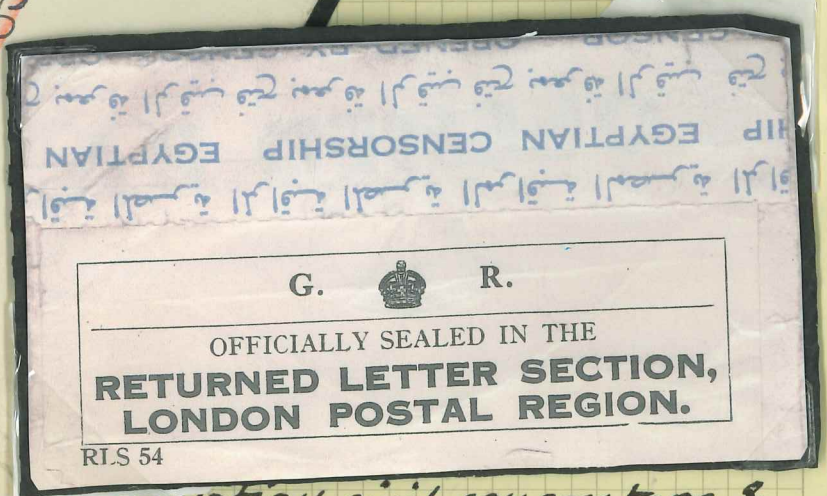 CENSOR OPENED BY CENSOR
فتح بمعرفة الرقيب فتح بمعرفة الرقيب فتح بمعرفة
EGYPTIAN CENSORSHIP EGYPTIAN
المراقبة المصرية المراقبة المصرية المراقبة
G. R.
OFFICIALLY SEALED IN THE
RETURNED LETTER SECTION,
LONDON POSTAL REGION.
RLS 54